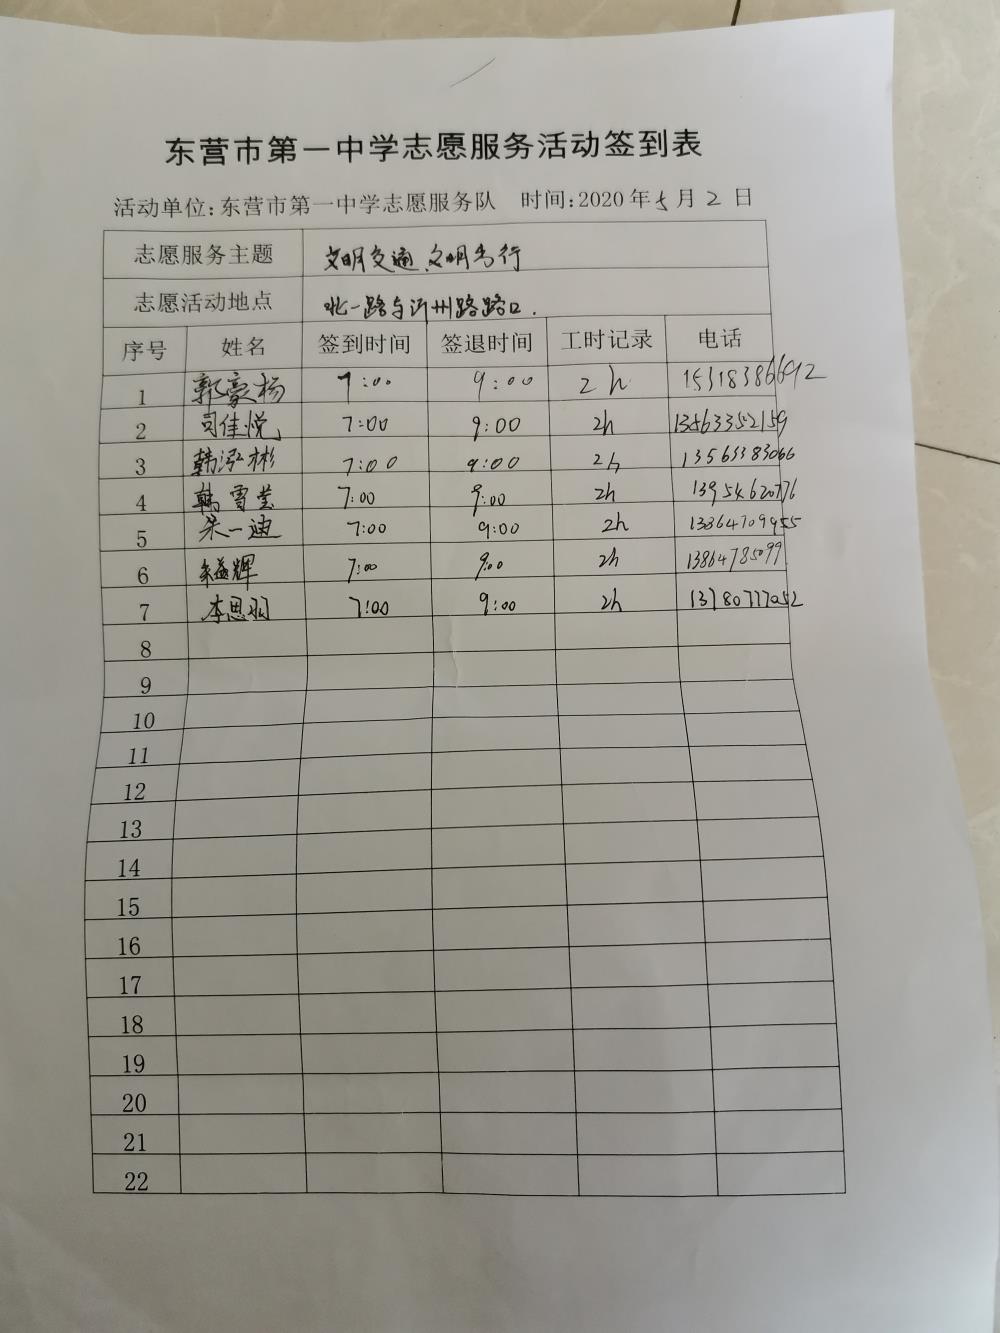 东营市第一中学志愿服务活动签到表
活动单位:东营市第一中学志愿服务队 时间:2020年5月2日
志愿服务主题 文明交通、文明出行
志愿活动地点 北一路与沂州路路口.
序号 姓名 签到时间 签退时间 工时记录 电话
1 郭豪杨 7:00 9:00 2h 15318386692
2 司佳悦 7:00 9:00 2h 13563352159
3 韩泓彬 7:00 9:00 2h 13563383066
4 韩雪莹 7:00 9:00 2h 13954620776
5 朱一迪 7:00 9:00 2h
6 7:00 9:00 2h 13864785099
7 李思羽 7:00 9:00 2h 13780777052
8
9
10
11
12
13
14
15
16
17
18
19
20
21
22